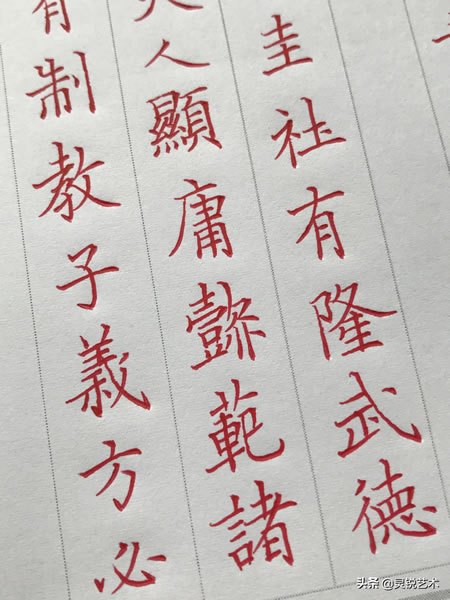 圭社有隆武德
人顯庸懿範諸
有制教子義方必
灵锐艺术
头条 @灵锐艺术